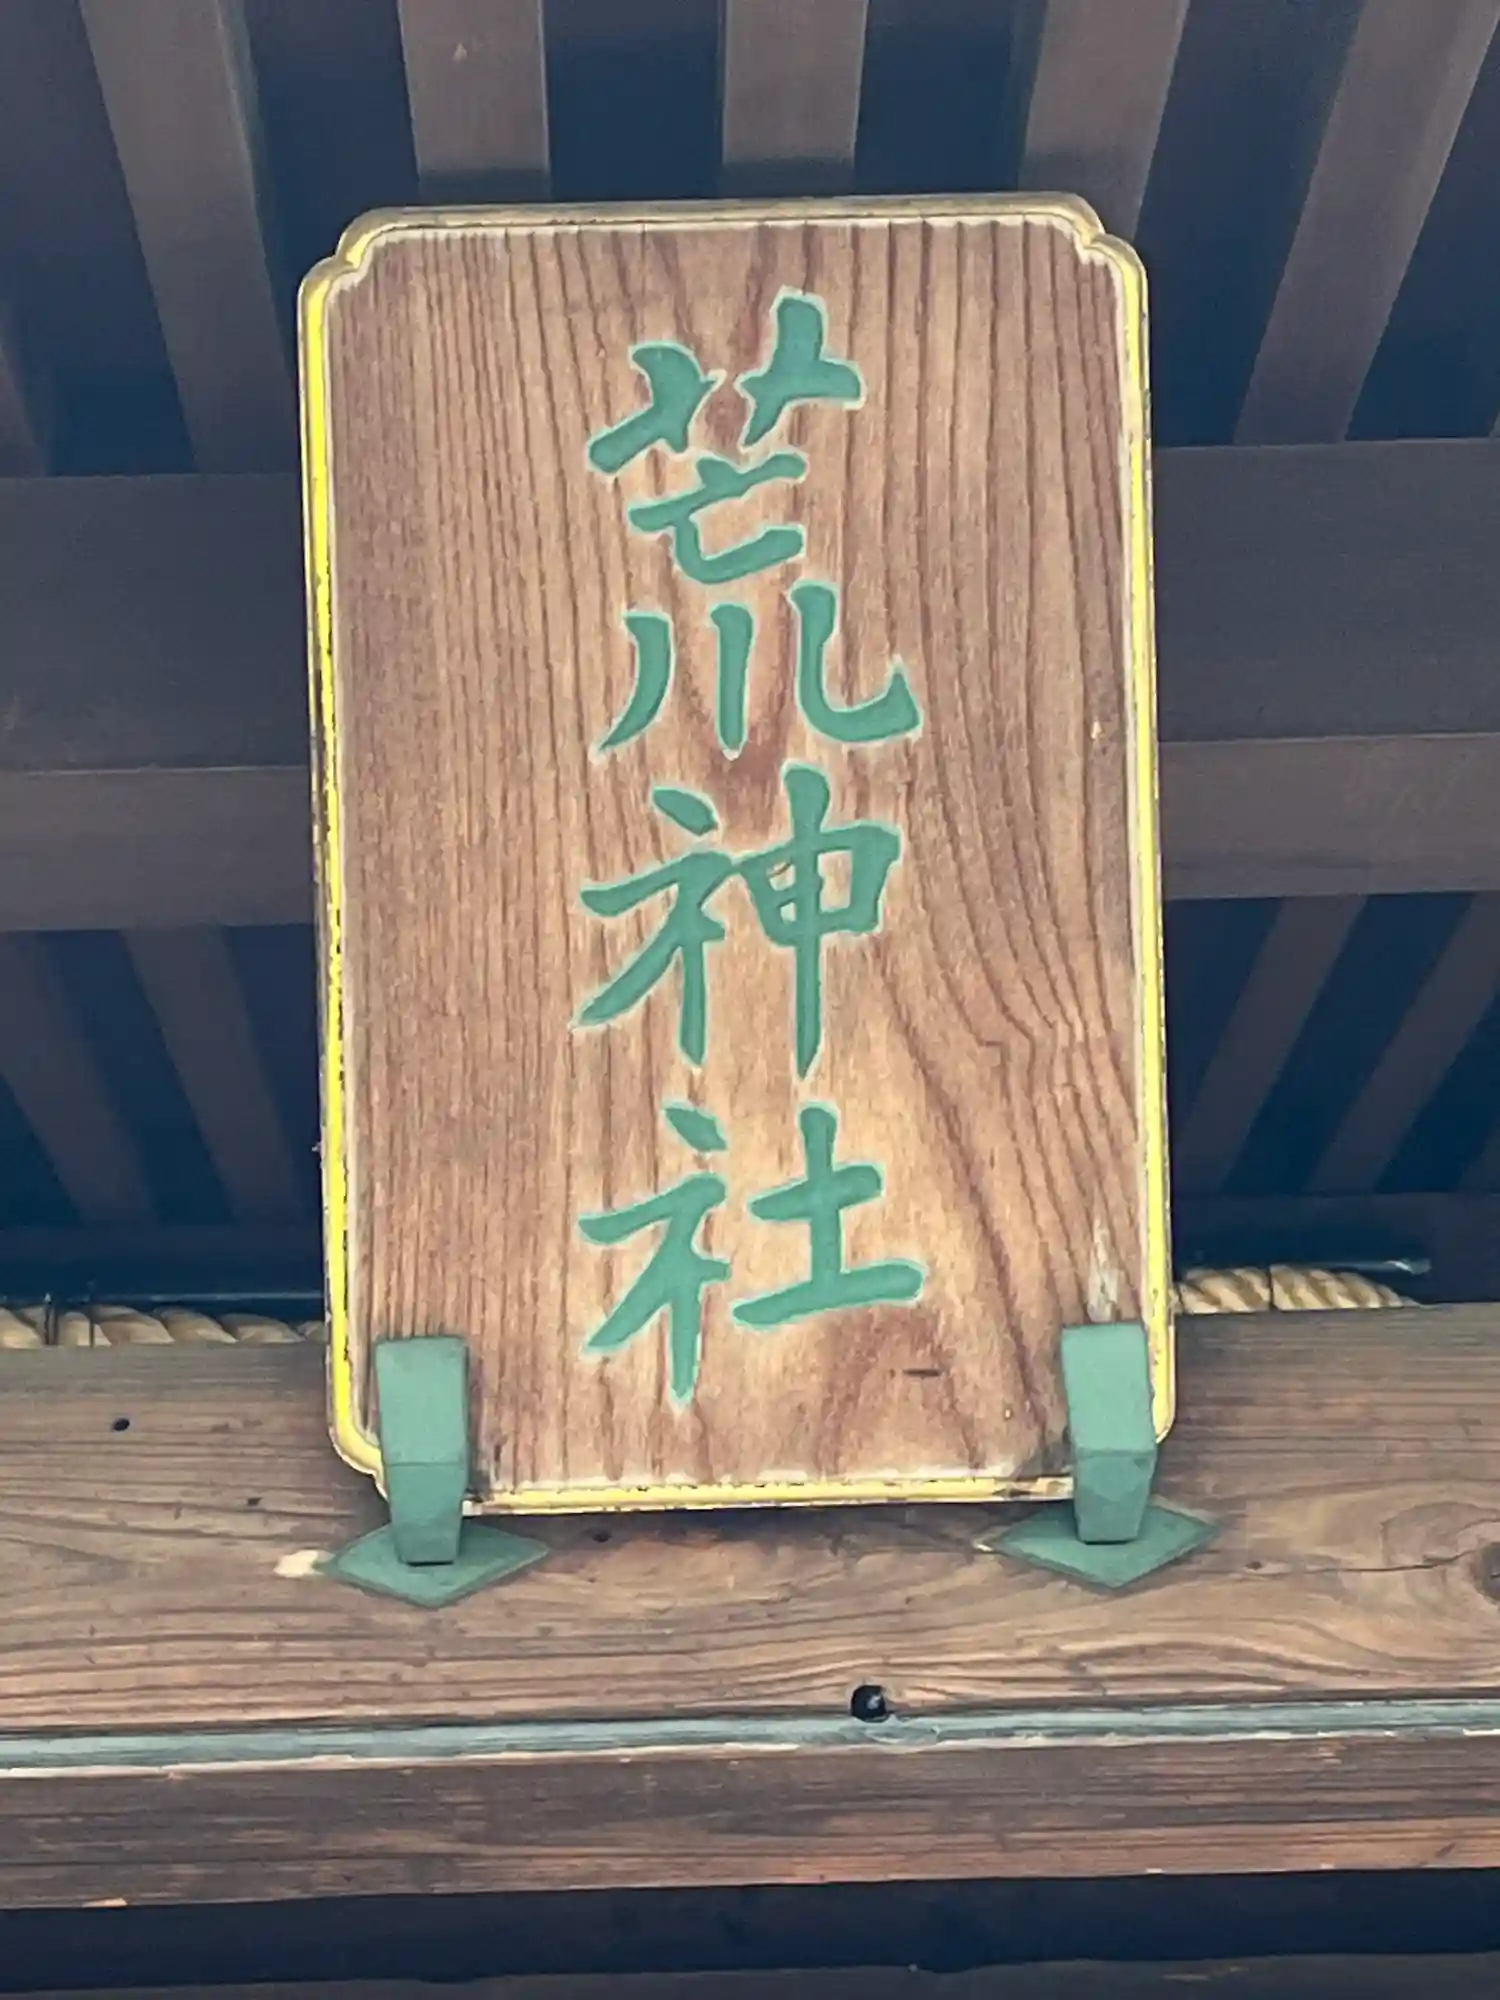 荒神社